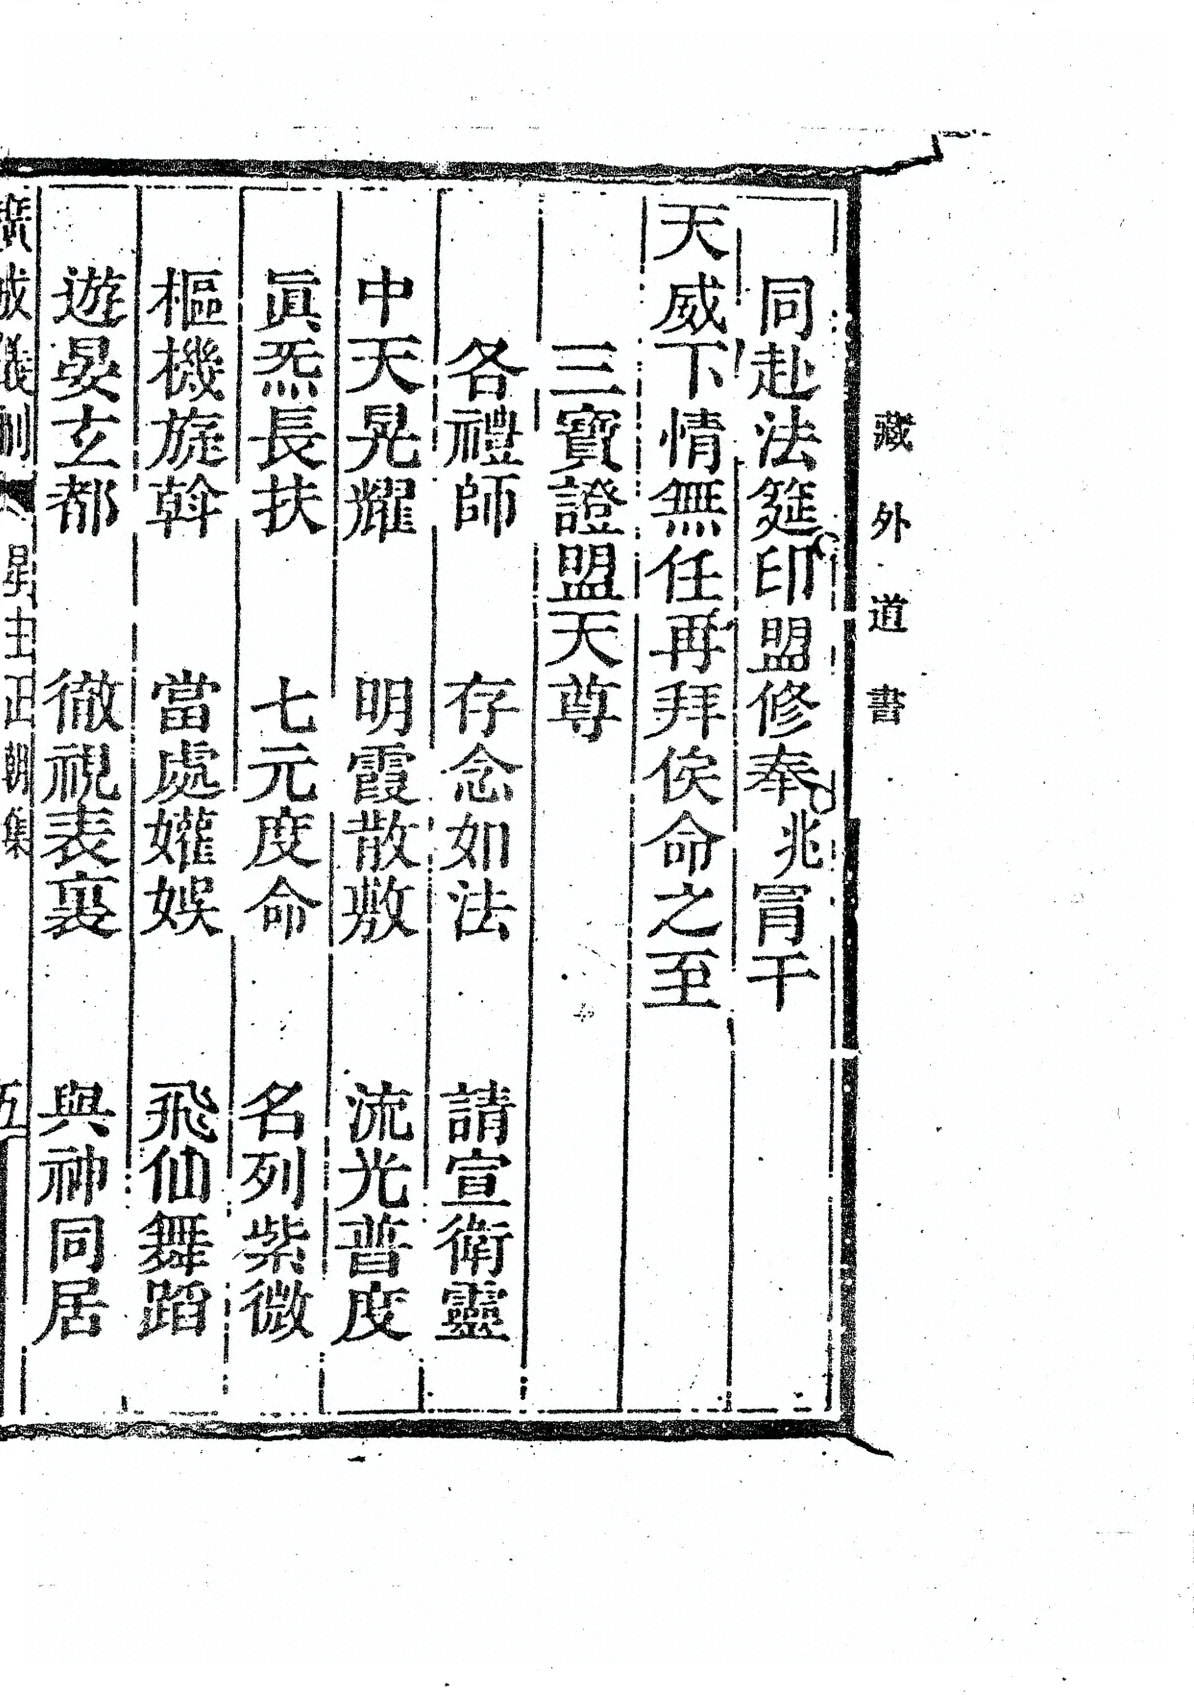 藏外道書
同赴法筵印盟修奉兆冐干
天威下情無任再拜俟命之至
三寶證盟天尊
各禮師　存念如法　請宣衛靈
中天晃耀　明霞散敷　流光普度
眞炁長扶　七元度命　名列紫微
樞機旋斡　當處嬉娛　飛仙舞蹈
遊晏玄都　徹視表裏　與神同居
廣成儀制　星主正朝集　五